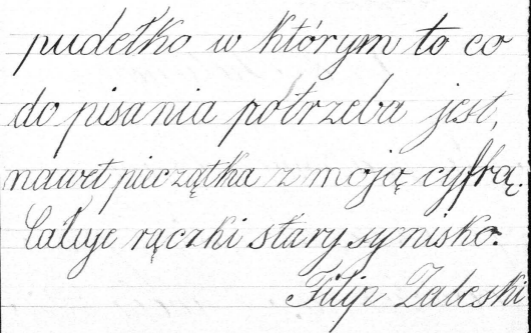 pudełko w którym to co
do pisania potrzeba jest,
nawet pieczątka z moją cyfrą.
Całuje rączki stary synisko.
Filip Zaleski